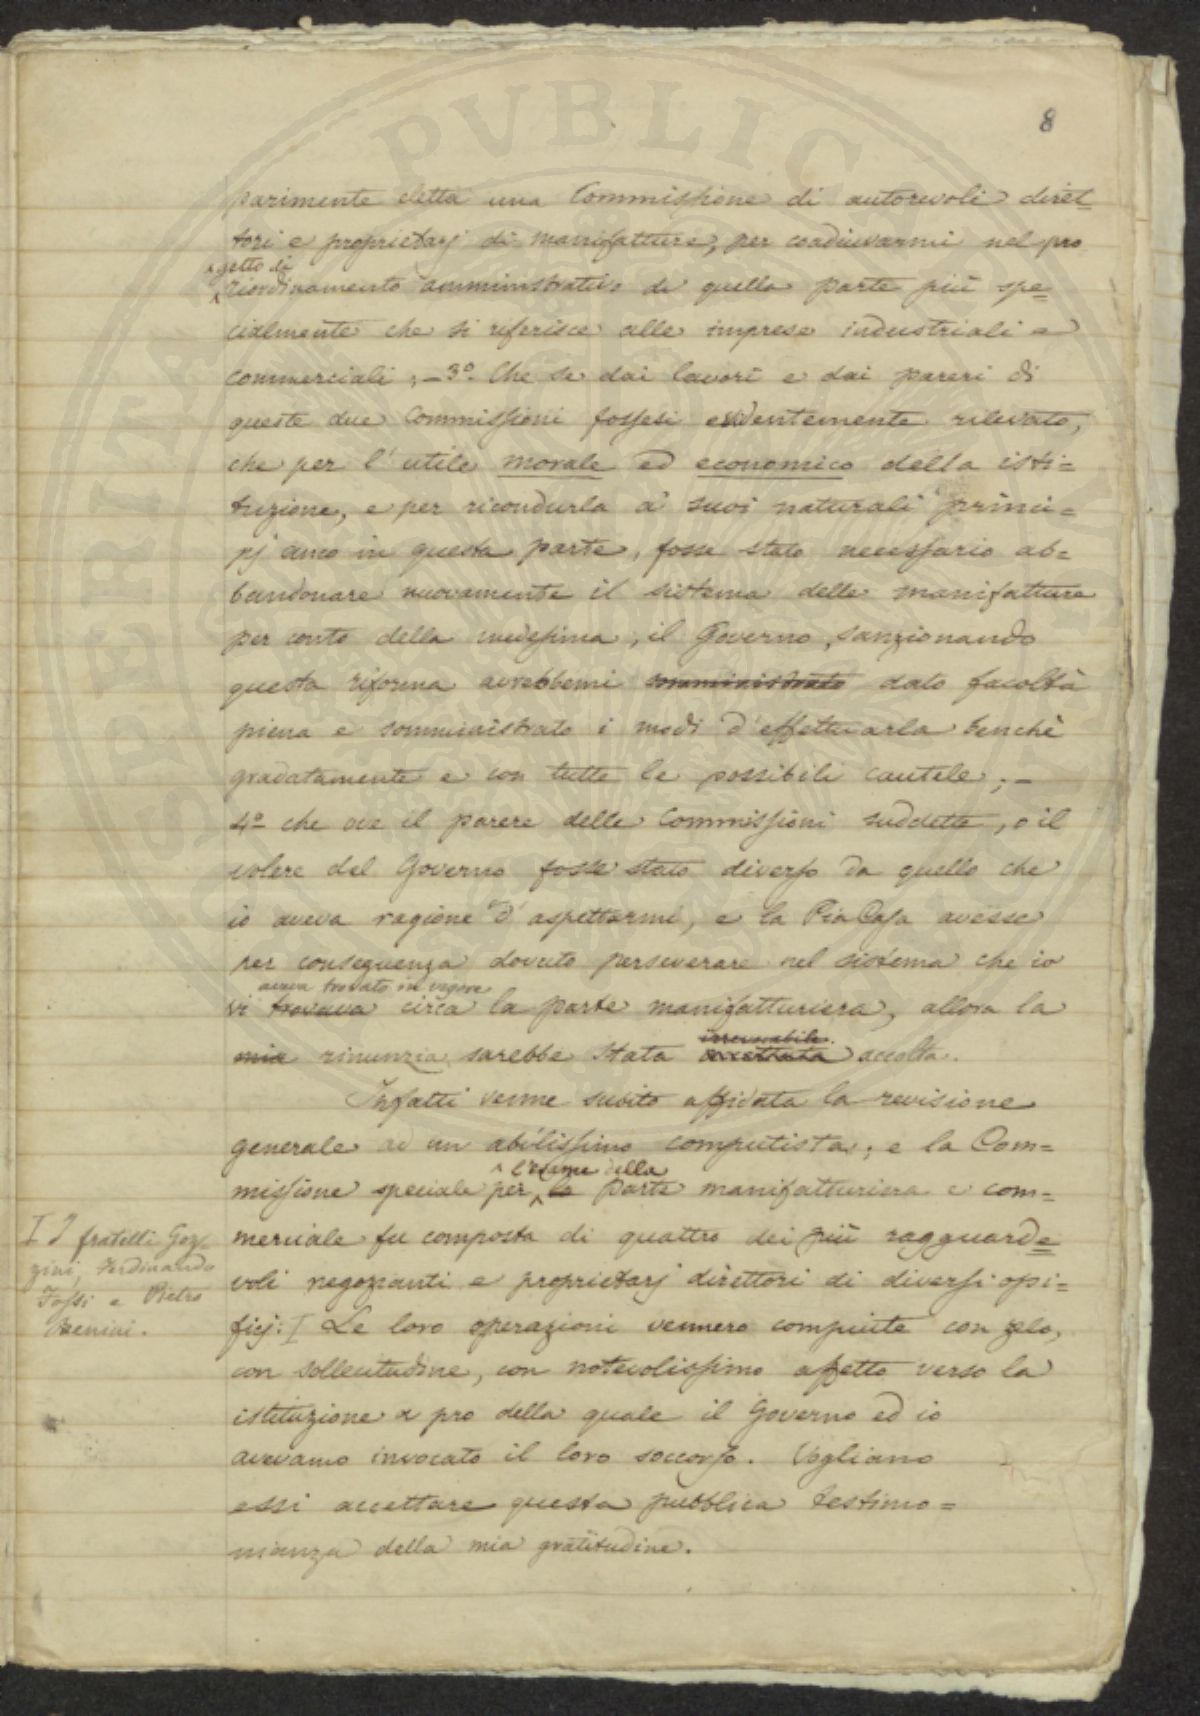 8
parimente eletta una Commissione di autorevoli diret-
tori e proprietarj di manifatture, per coadiuvarmi nel pro
getto di
riordinamento amministrativo di quella parte più spe-
cialmente che si riferisce alle imprese industriali e
commerciali; – 3º. Che se dai lavori e dai pareri di
queste due Commissioni fossesi evidentemente rilevato,
che per l'utile morale ed economico della isti=
tuzione, e per ricondurla a' suoi naturali princi=
pj anco in questa parte, fosse stato necessario ab=
bandonare nuovamente il sistema delle manifatture
per conto della medesima, il Governo, sanzionando
questa riforma avrebbemi somministrato dato facoltà
piena e somministrato i modi d'effettuarla benchè
gradatamente e con tutte le possibili cautele; –
4º che ove il parere delle Commissioni suddette, o il
volere del Governo fosse stato diverso da quello che
io aveva ragione d'aspettarmi, e la Pia Casa avesse
per conseguenza dovuto perseverare nel sistema che io
aveva trovato in vigore
vi trovava circa la parte manifatturiera, allora la
irrevocabile
mia rinunzia sarebbe stata accettata accolta.
Infatti venne subito affidata la revisione
generale ad un abilissimo computista; e la Com=
l'esame della
missione speciale per la parte manifatturiera e com=
merciale fu composta di quattro dei più ragguarde
voli negozianti e proprietarj direttori di diversi opi=
ficj. [ Le loro operazioni vennero compiute con zelo,
con sollecitudine, con notevolissimo affetto verso la
istituzione a pro della quale il Governo ed io
avevamo invocato il loro soccorso. Vogliano
essi accettare questa pubblica testimo=
nianza della mia gratitudine.
[ I fratelli Goz-
zini, Ferdinando
Fossi e Pietro
Benini.
PVBLICA